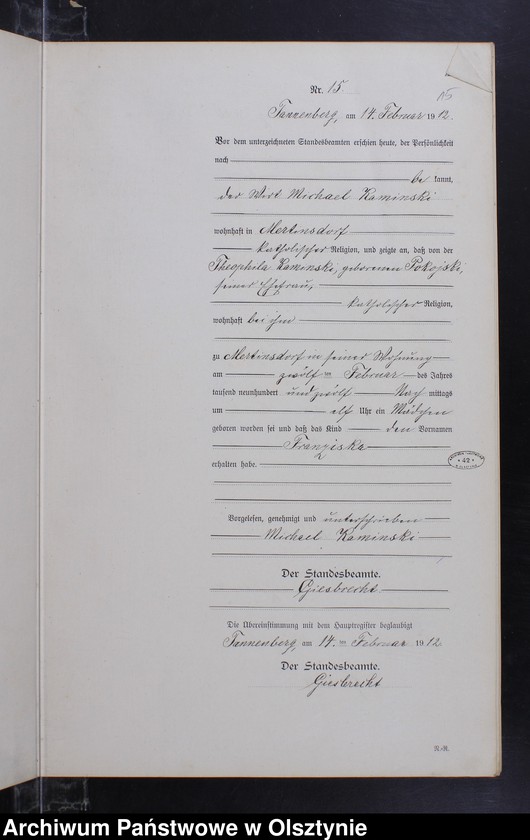 Nr. 15
15
Tannenberg, am 14. Februar 1912.
Vor dem unterzeichneten Standesbeamten erschien heute, der Persönlichkeit
nach
be kannt,
der Wirt Michael Kaminski
wohnhaft in Mertinsdorf
katholischer Religion, und zeigte an, daß von der
Theophila Kaminski, geborenen Pokojski,
seiner Ehefrau,
katholischer Religion,
wohnhaft bei ihm
zu Mertinsdorf in seiner Wohnung
am zwölf ten Februar des Jahres
tausend neunhundert und zwölf Nach mittags
um elf Uhr ein Mädchen
geboren worden sei und daß das Kind den Vornamen
Franziska
erhalten habe.
42
Vorgelesen, genehmigt und unterschrieben
Michael Kaminski
Der Standesbeamte.
Giesbrecht
Die Übereinstimmung mit dem Hauptregister beglaubigt
Tannenberg, am 14. ten Februar 1912
Der Standesbeamte.
Giesbrecht
Archiwum Państwowe w Olsztynie